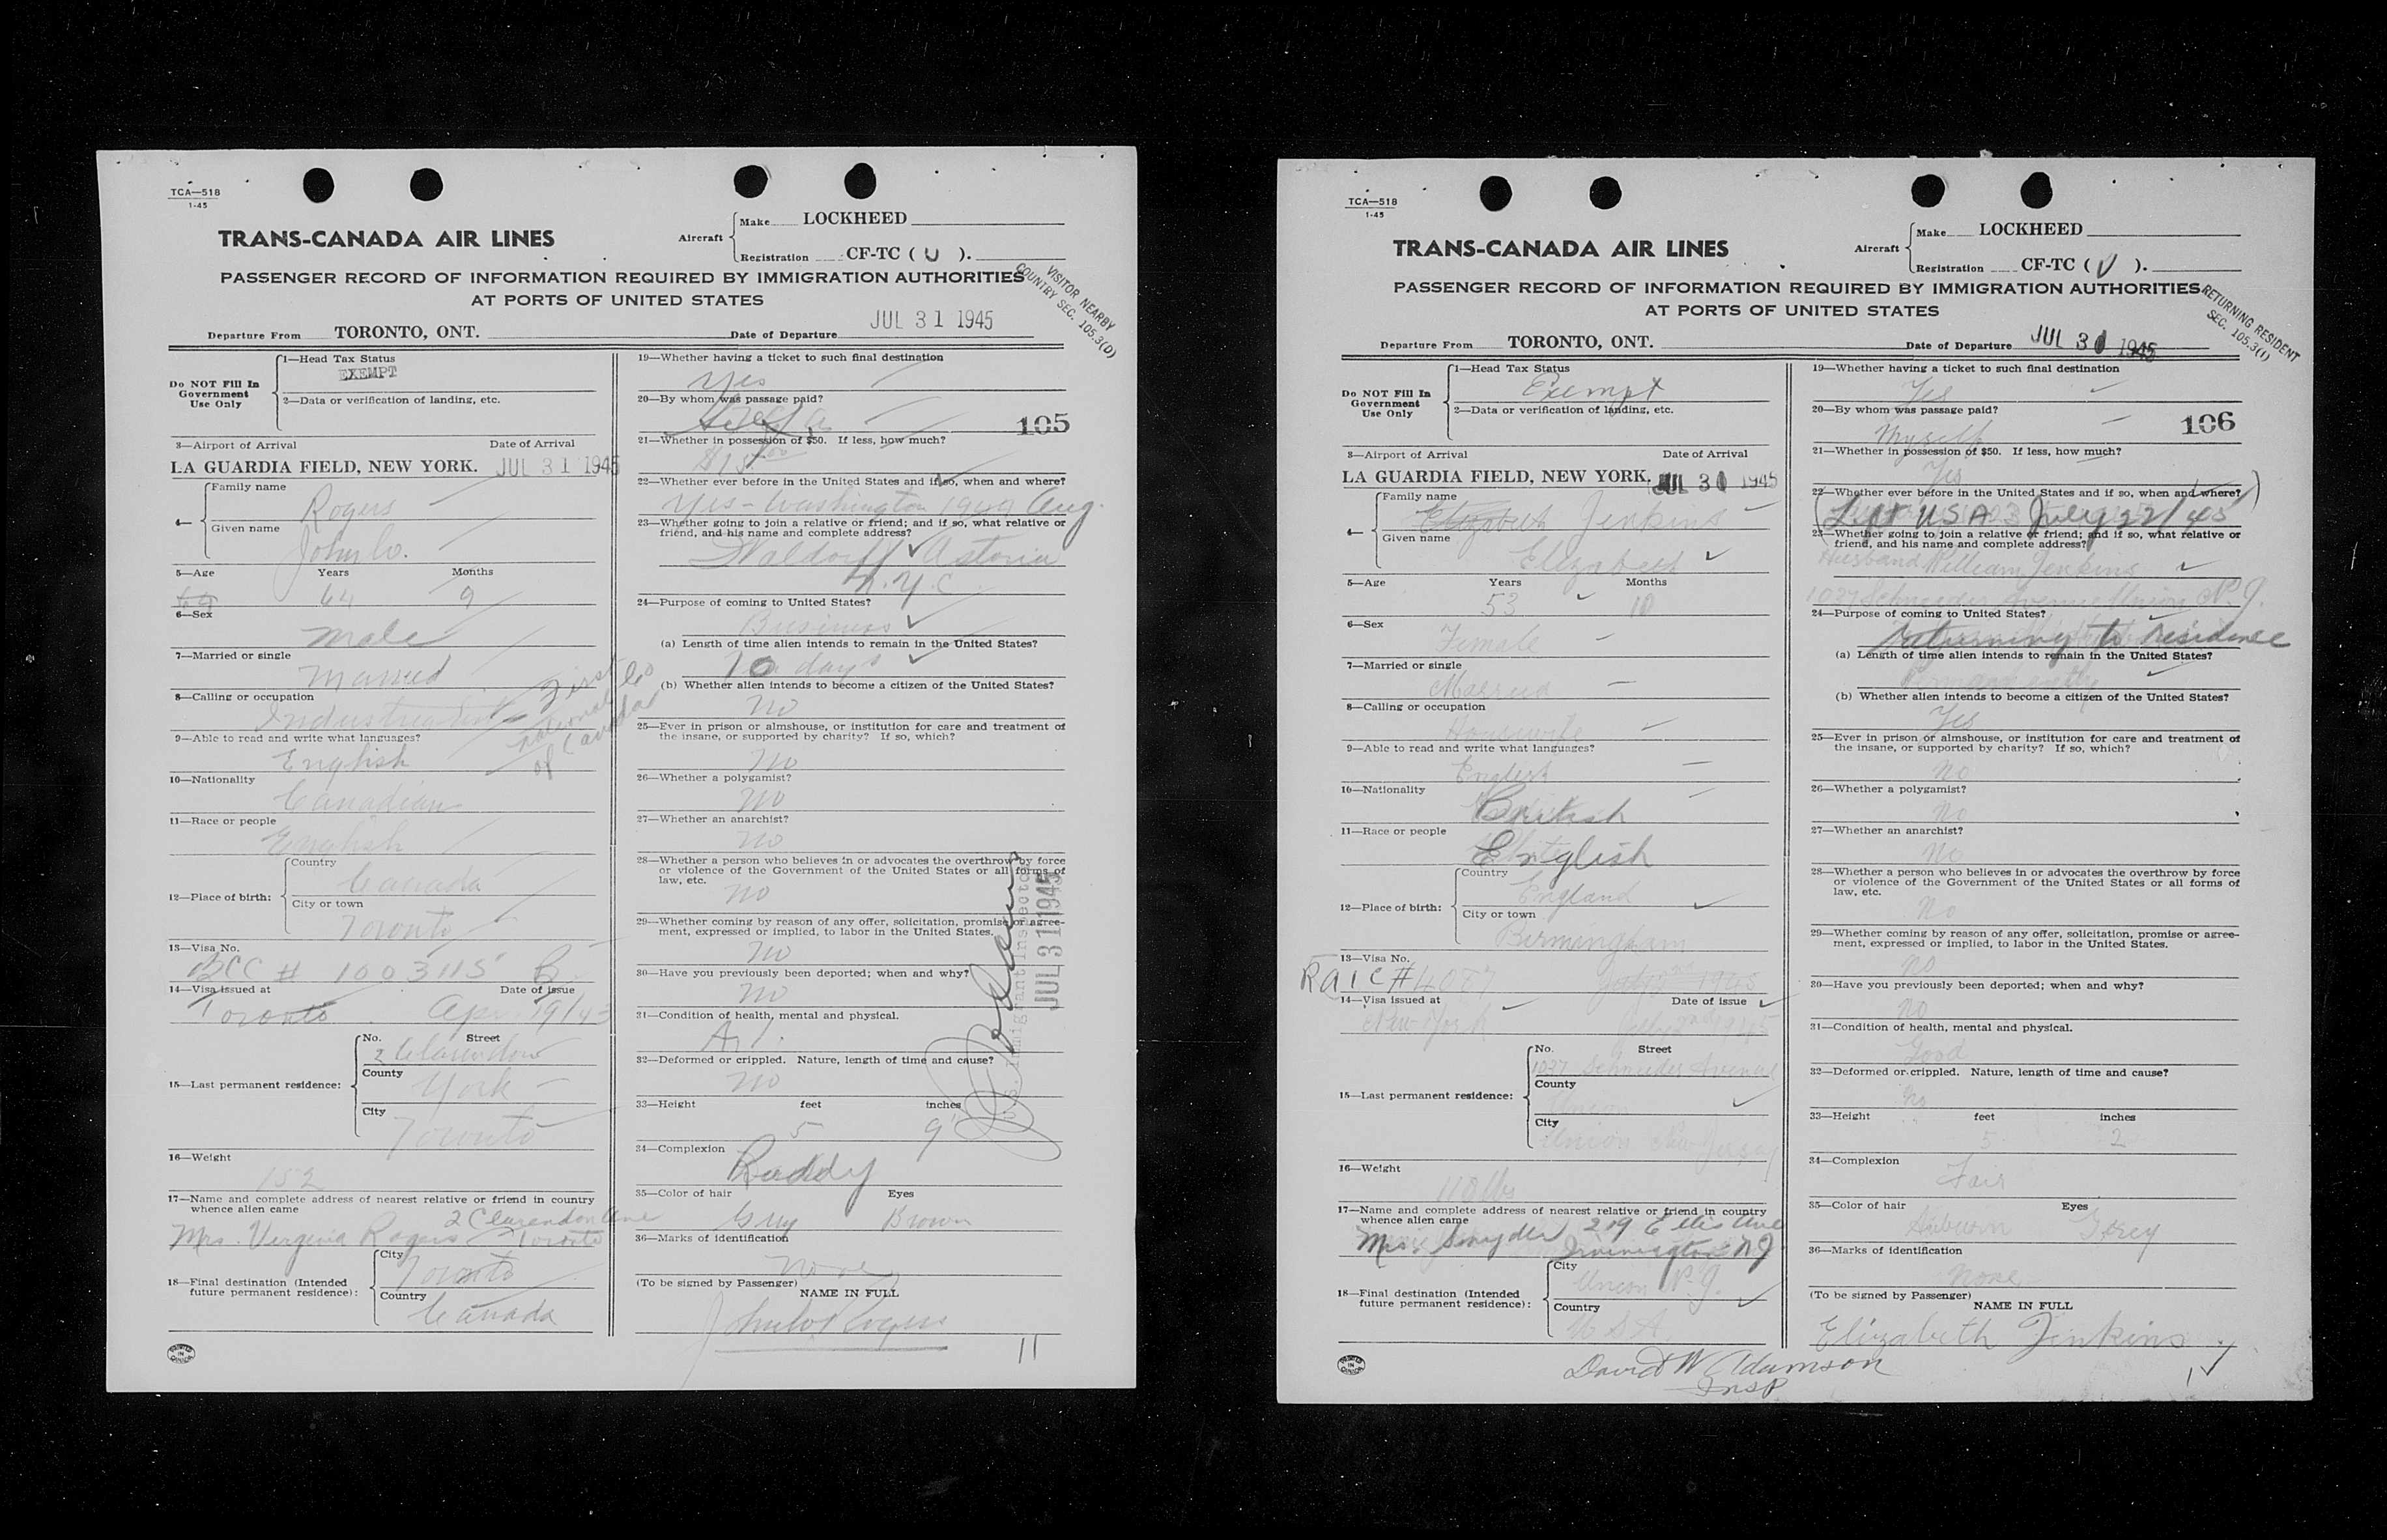 TCA—518
1-45
TRANS-CANADA AIR LINES
Aircraft
Make LOCKHEED
Registration CF-TC ( U ).
PASSENGER RECORD OF INFORMATION REQUIRED BY IMMIGRATION AUTHORITIES
AT PORTS OF UNITED STATES
VISITOR NEARBY
COUNTRY SEC. 105.3(D)
Departure From TORONTO, ONT. Date of Departure JUL 31 1945
Do NOT Fill In
Government
Use Only
1—Head Tax Status
EXEMPT
2—Data or verification of landing, etc.
3—Airport of Arrival Date of Arrival
LA GUARDIA FIELD, NEW YORK. JUL 31 1945
4—
Family name
Rogers
Given name
John
5—Age Years Months
64 9
6—Sex
Male
7—Married or single
Married
8—Calling or occupation
Industrialist
national
of Canada
9—Able to read and write what languages?
English
10—Nationality
Canadian
11—Race or people
English
12—Place of birth:
Country
Canada
City or town
Toronto
13—Visa No.
BCC # 1003115 B
14—Visa issued at Date of issue
Toronto Apr 19/43
15—Last permanent residence:
No. Street
2 Clarendon
County
York
City
Toronto
16—Weight
152
17—Name and complete address of nearest relative or friend in country
whence alien came
2 Clarendon Ave
Mrs. Virginia Rogers Toronto
18—Final destination (Intended
future permanent residence):
City
Toronto
Country
Canada
PRINTED IN CANADA
19—Whether having a ticket to such final destination
Yes
20—By whom was passage paid?
105
21—Whether in possession of $50. If less, how much?
22—Whether ever before in the United States and if so, when and where?
Yes - Washington Aug.
23—Whether going to join a relative or friend; and if so, what relative or
friend, and his name and complete address?
Waldorf Astoria
N.Y.C.
24—Purpose of coming to United States?
Business
(a) Length of time alien intends to remain in the United States?
10 days
(b) Whether alien intends to become a citizen of the United States?
No
25—Ever in prison or almshouse, or institution for care and treatment of
the insane, or supported by charity? If so, which?
No
26—Whether a polygamist?
No
27—Whether an anarchist?
No
28—Whether a person who believes in or advocates the overthrow by force
or violence of the Government of the United States or all forms of
law, etc.
No
29—Whether coming by reason of any offer, solicitation, promise or agree-
ment, expressed or implied, to labor in the United States.
No
30—Have you previously been deported; when and why?
No
31—Condition of health, mental and physical.
A1.
32—Deformed or crippled. Nature, length of time and cause?
No
33—Height feet inches
5 9
34—Complexion
Ruddy
35—Color of hair Eyes
Grey Brown
36—Marks of identification
None
(To be signed by Passenger)
NAME IN FULL
John Rogers
11
U.S. Immigrant Inspector
JUL 31 1945
TCA—518
1-45
TRANS-CANADA AIR LINES
Aircraft
Make LOCKHEED
Registration CF-TC ( V ).
PASSENGER RECORD OF INFORMATION REQUIRED BY IMMIGRATION AUTHORITIES
AT PORTS OF UNITED STATES
RETURNING RESIDENT
SEC. 105.3(I)
Departure From TORONTO, ONT. Date of Departure JUL 31 1945
Do NOT Fill In
Government
Use Only
1—Head Tax Status
Exempt
2—Data or verification of landing, etc.
3—Airport of Arrival Date of Arrival
LA GUARDIA FIELD, NEW YORK. JUL 31 1945
4—
Family name
Elizabeth Jenkins
Given name
Elizabeth
5—Age Years Months
53 10
6—Sex
Female
7—Married or single
Married
8—Calling or occupation
Housewife
9—Able to read and write what languages?
English
10—Nationality
British
11—Race or people
English
12—Place of birth:
Country
England
City or town
Birmingham
13—Visa No.
RAIC # 4087 1945
14—Visa issued at Date of issue
New York 1945
15—Last permanent residence:
No. Street
1037 Schneider Avenue
County
Union
City
Union New Jersey
16—Weight
110 lbs
17—Name and complete address of nearest relative or friend in country
whence alien came
Mrs. Snyder 219 Ellis Ave
Irvington NJ
18—Final destination (Intended
future permanent residence):
City
Union N.J.
Country
U.S.A.
PRINTED IN CANADA
19—Whether having a ticket to such final destination
Yes
20—By whom was passage paid?
Myself
106
21—Whether in possession of $50. If less, how much?
Yes
22—Whether ever before in the United States and if so, when and where?
(Left USA July 22/45)
23—Whether going to join a relative or friend; and if so, what relative or
friend, and his name and complete address?
Husband William Jenkins
1037 Schneider Avenue Union N.J.
24—Purpose of coming to United States?
Returning to residence
(a) Length of time alien intends to remain in the United States?
Permanently
(b) Whether alien intends to become a citizen of the United States?
Yes
25—Ever in prison or almshouse, or institution for care and treatment of
the insane, or supported by charity? If so, which?
No
26—Whether a polygamist?
No
27—Whether an anarchist?
No
28—Whether a person who believes in or advocates the overthrow by force
or violence of the Government of the United States or all forms of
law, etc.
No
29—Whether coming by reason of any offer, solicitation, promise or agree-
ment, expressed or implied, to labor in the United States.
No
30—Have you previously been deported; when and why?
No
31—Condition of health, mental and physical.
Good
32—Deformed or crippled. Nature, length of time and cause?
No
33—Height feet inches
5 2
34—Complexion
Fair
35—Color of hair Eyes
Auburn Grey
36—Marks of identification
None
(To be signed by Passenger)
NAME IN FULL
Elizabeth Jenkins
David W Adamson
Insp